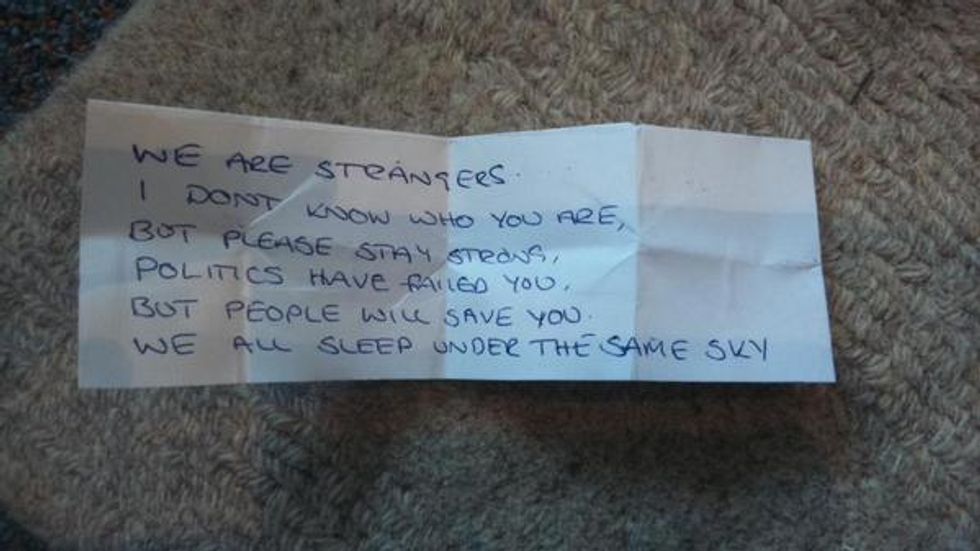 WE ARE STRANGERS.
I DONT KNOW WHO YOU ARE,
BUT PLEASE STAY STRONG,
POLITICS HAVE FAILED YOU,
BUT PEOPLE WILL SAVE YOU.
WE ALL SLEEP UNDER THE SAME SKY